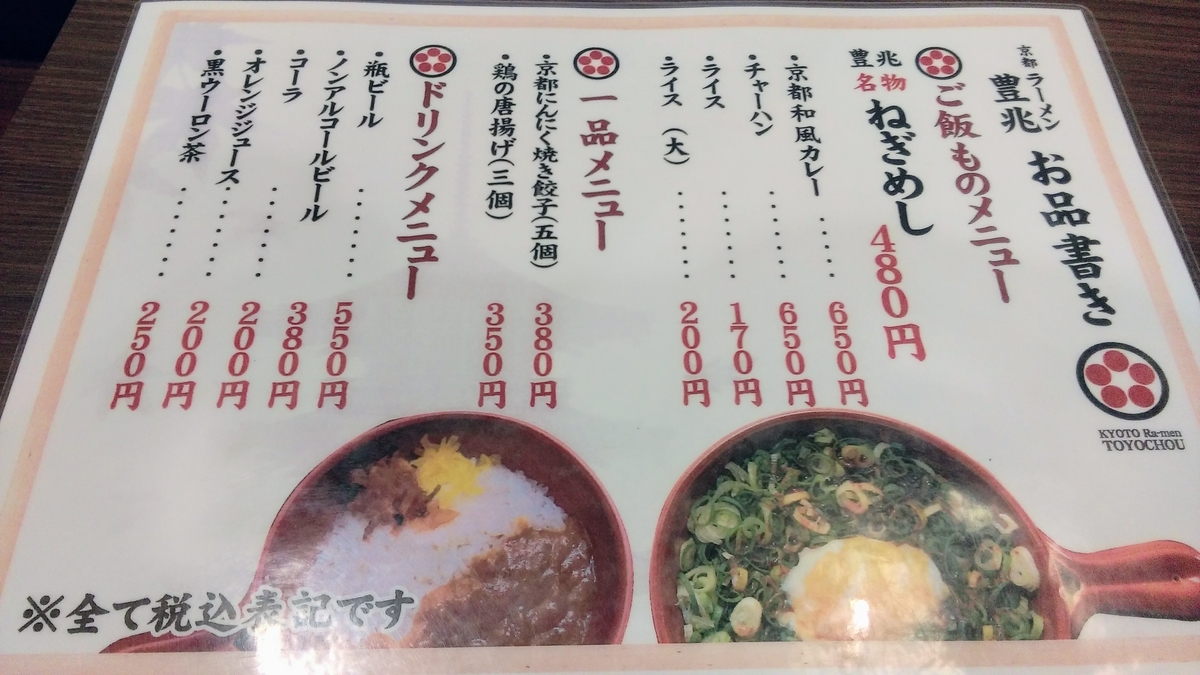 京都ラーメン
豊兆 お品書き
KYOTO Ra-men
TOYOCHOU
ご飯ものメニュー
豊兆名物 ねぎめし 480円
・京都和風カレー ・・・・・ 650円
・チャーハン ・・・・・・ 650円
・ライス ・・・・・・ 170円
・ライス(大) ・・・・・・ 200円
一品メニュー
・京都にんにく焼き餃子(五個) 380円
・鶏の唐揚げ(三個) 350円
ドリンクメニュー
・瓶ビール ・・・・・・ 550円
・ノンアルコールビール 380円
・コーラ ・・・・・・ 200円
・オレンジジュース・・・・・・ 200円
・黒ウーロン茶 ・・・・・・ 250円
※全て税込表記です